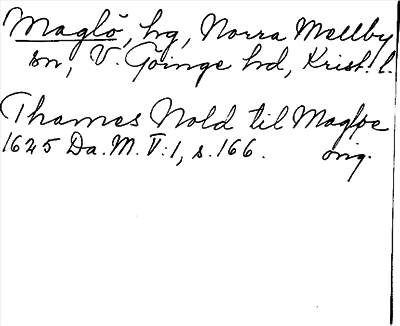 Maglö, hg, Norra Mellby
sn, V. Göinge hd, Krist. l.
Thames Nold til Magløe
1645 Da. M. V:1, s. 166. orig.